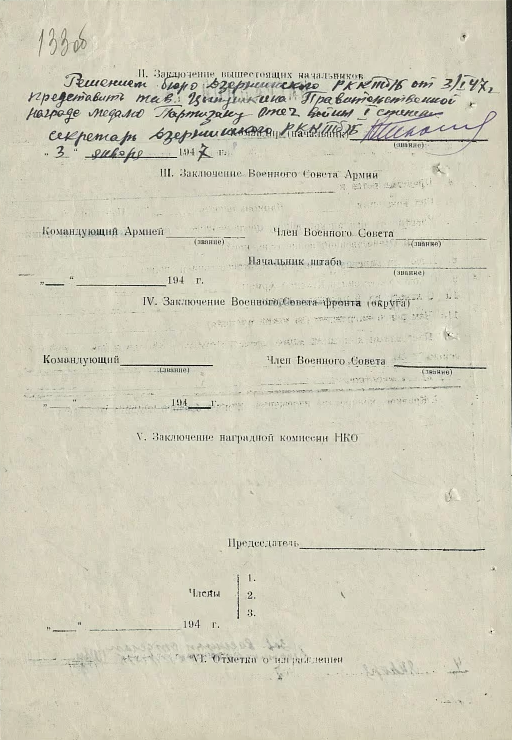 133об
II. Заключение вышестоящих начальников
Решением бюро Дзержинского РК КП(б)Б от 3/I 47г.
представить тов. Правительственной
награде медалью Партизану Отеч войны I степени
секретарь Дзержинского РК КП(б)Б (начальник)
(звание)
„ 3 " января 1947 г.
III. Заключение Военного Совета Армии
Командующий Армией Член Военного Совета
(звание) (звание)
Начальник штаба
(звание)
„ " 194 г.
IV. Заключение Военного Совета фронта (округа)
Командующий Член Военного Совета
(звание) (звание)
„ " 194 г.
V. Заключение наградной комиссии НКО
Председатель
Члены
1.
2.
3.
„ " 194 г.
VI. Отметки о награждении